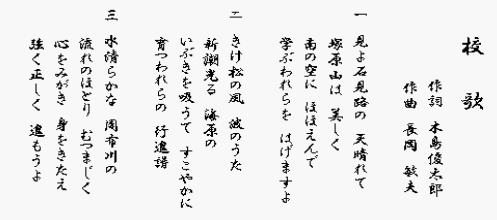 校歌
作詞 木島俊太郎
作曲 長岡敏夫
一 見よ石見路の 天晴れて
塚原山は 美しく
南の空に ほほえんで
学ぶわれらを はげますよ
二 きけ松の風 波のうた
新潮光る 海原の
いぶきを吸うて すこやかに
育つわれらの 行進譜
三 水清らかな 周布川の
流れのほとり むつまじく
心をみがき 身をきたえ
強く正しく 進もうよ